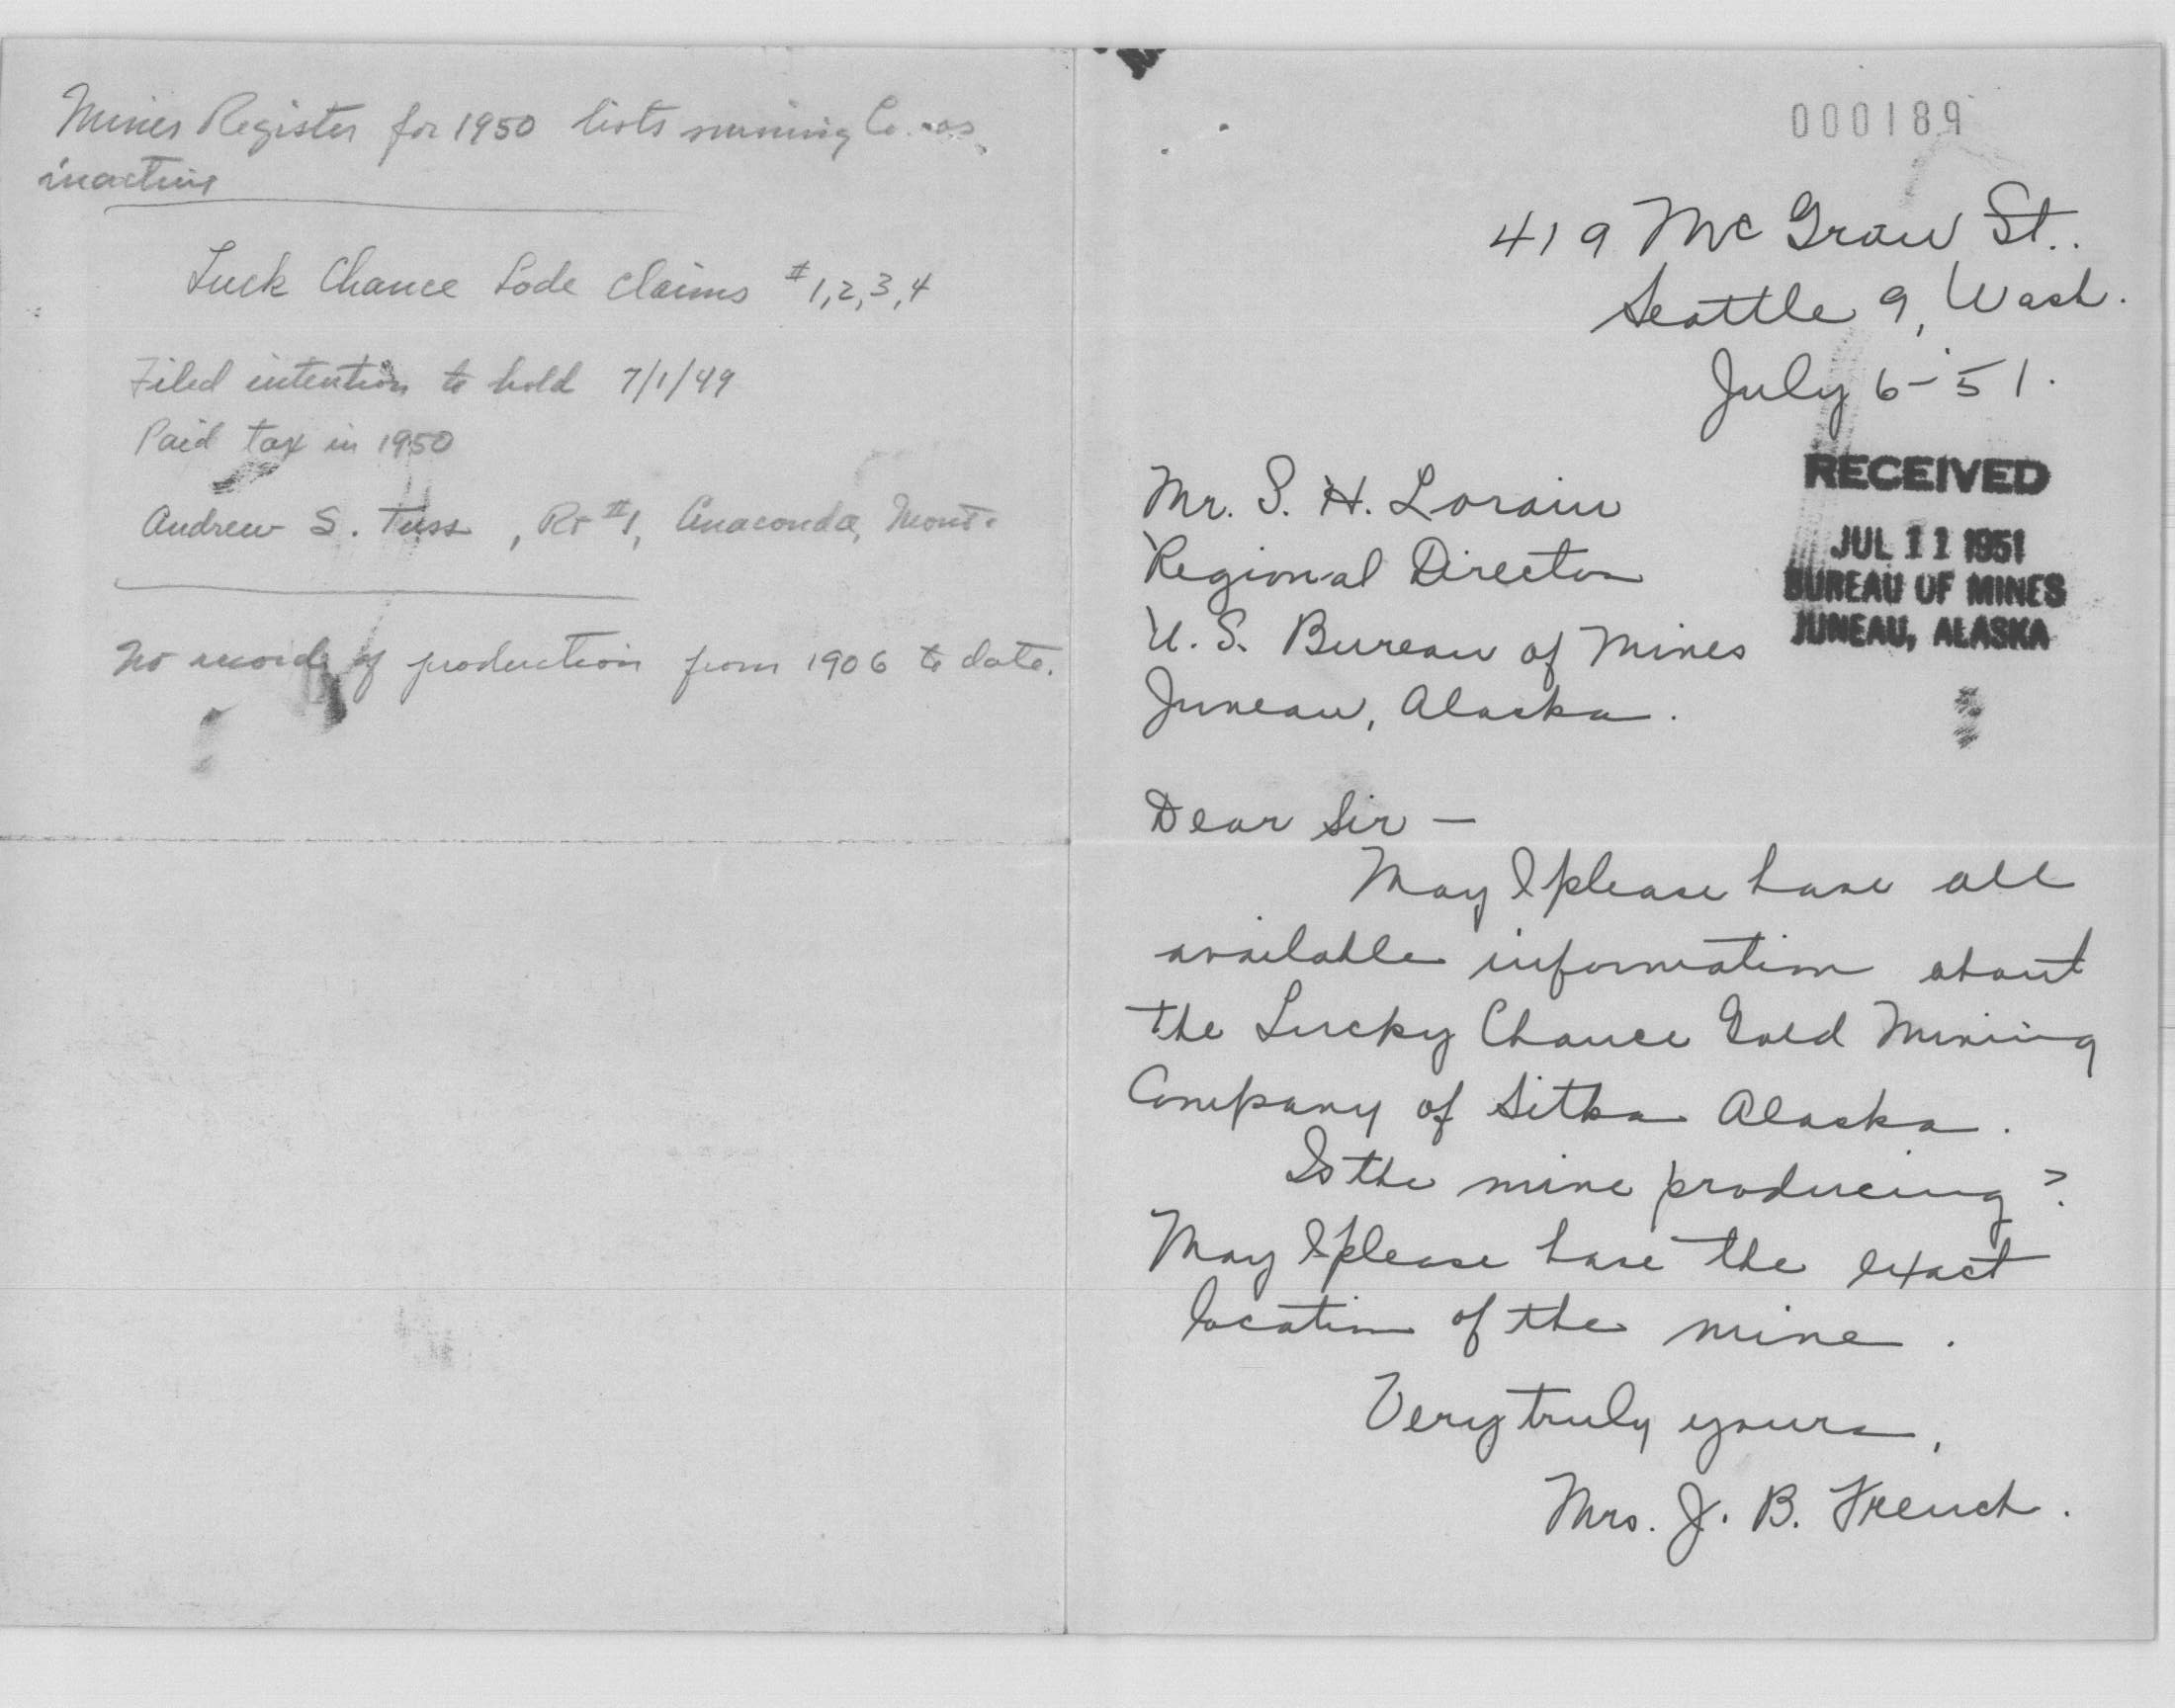 Mines Register for 1950 lists mining Co. as
inactive
Luck Chance Lode claims #1,2,3,4
Filed intention to hold 7/1/49
Paid tax in 1950
Andrew S. Tuss, Rt #1, Anaconda, Mont.
No record of production from 1906 to date.
000189
419 McGraw St.
Seattle 9, Wash.
July 6-51.
RECEIVED
JUL 11 1951
BUREAU OF MINES
JUNEAU, ALASKA
Mr. S. H. Lorain
Regional Director
U. S. Bureau of Mines
Juneau, Alaska.
Dear Sir —
May I please have all
available information about
the Lucky Chance Gold Mining
Company of Sitka Alaska.
Is the mine producing?
May I please have the exact
location of the mine.
Very truly yours,
Mrs. J. B. French.